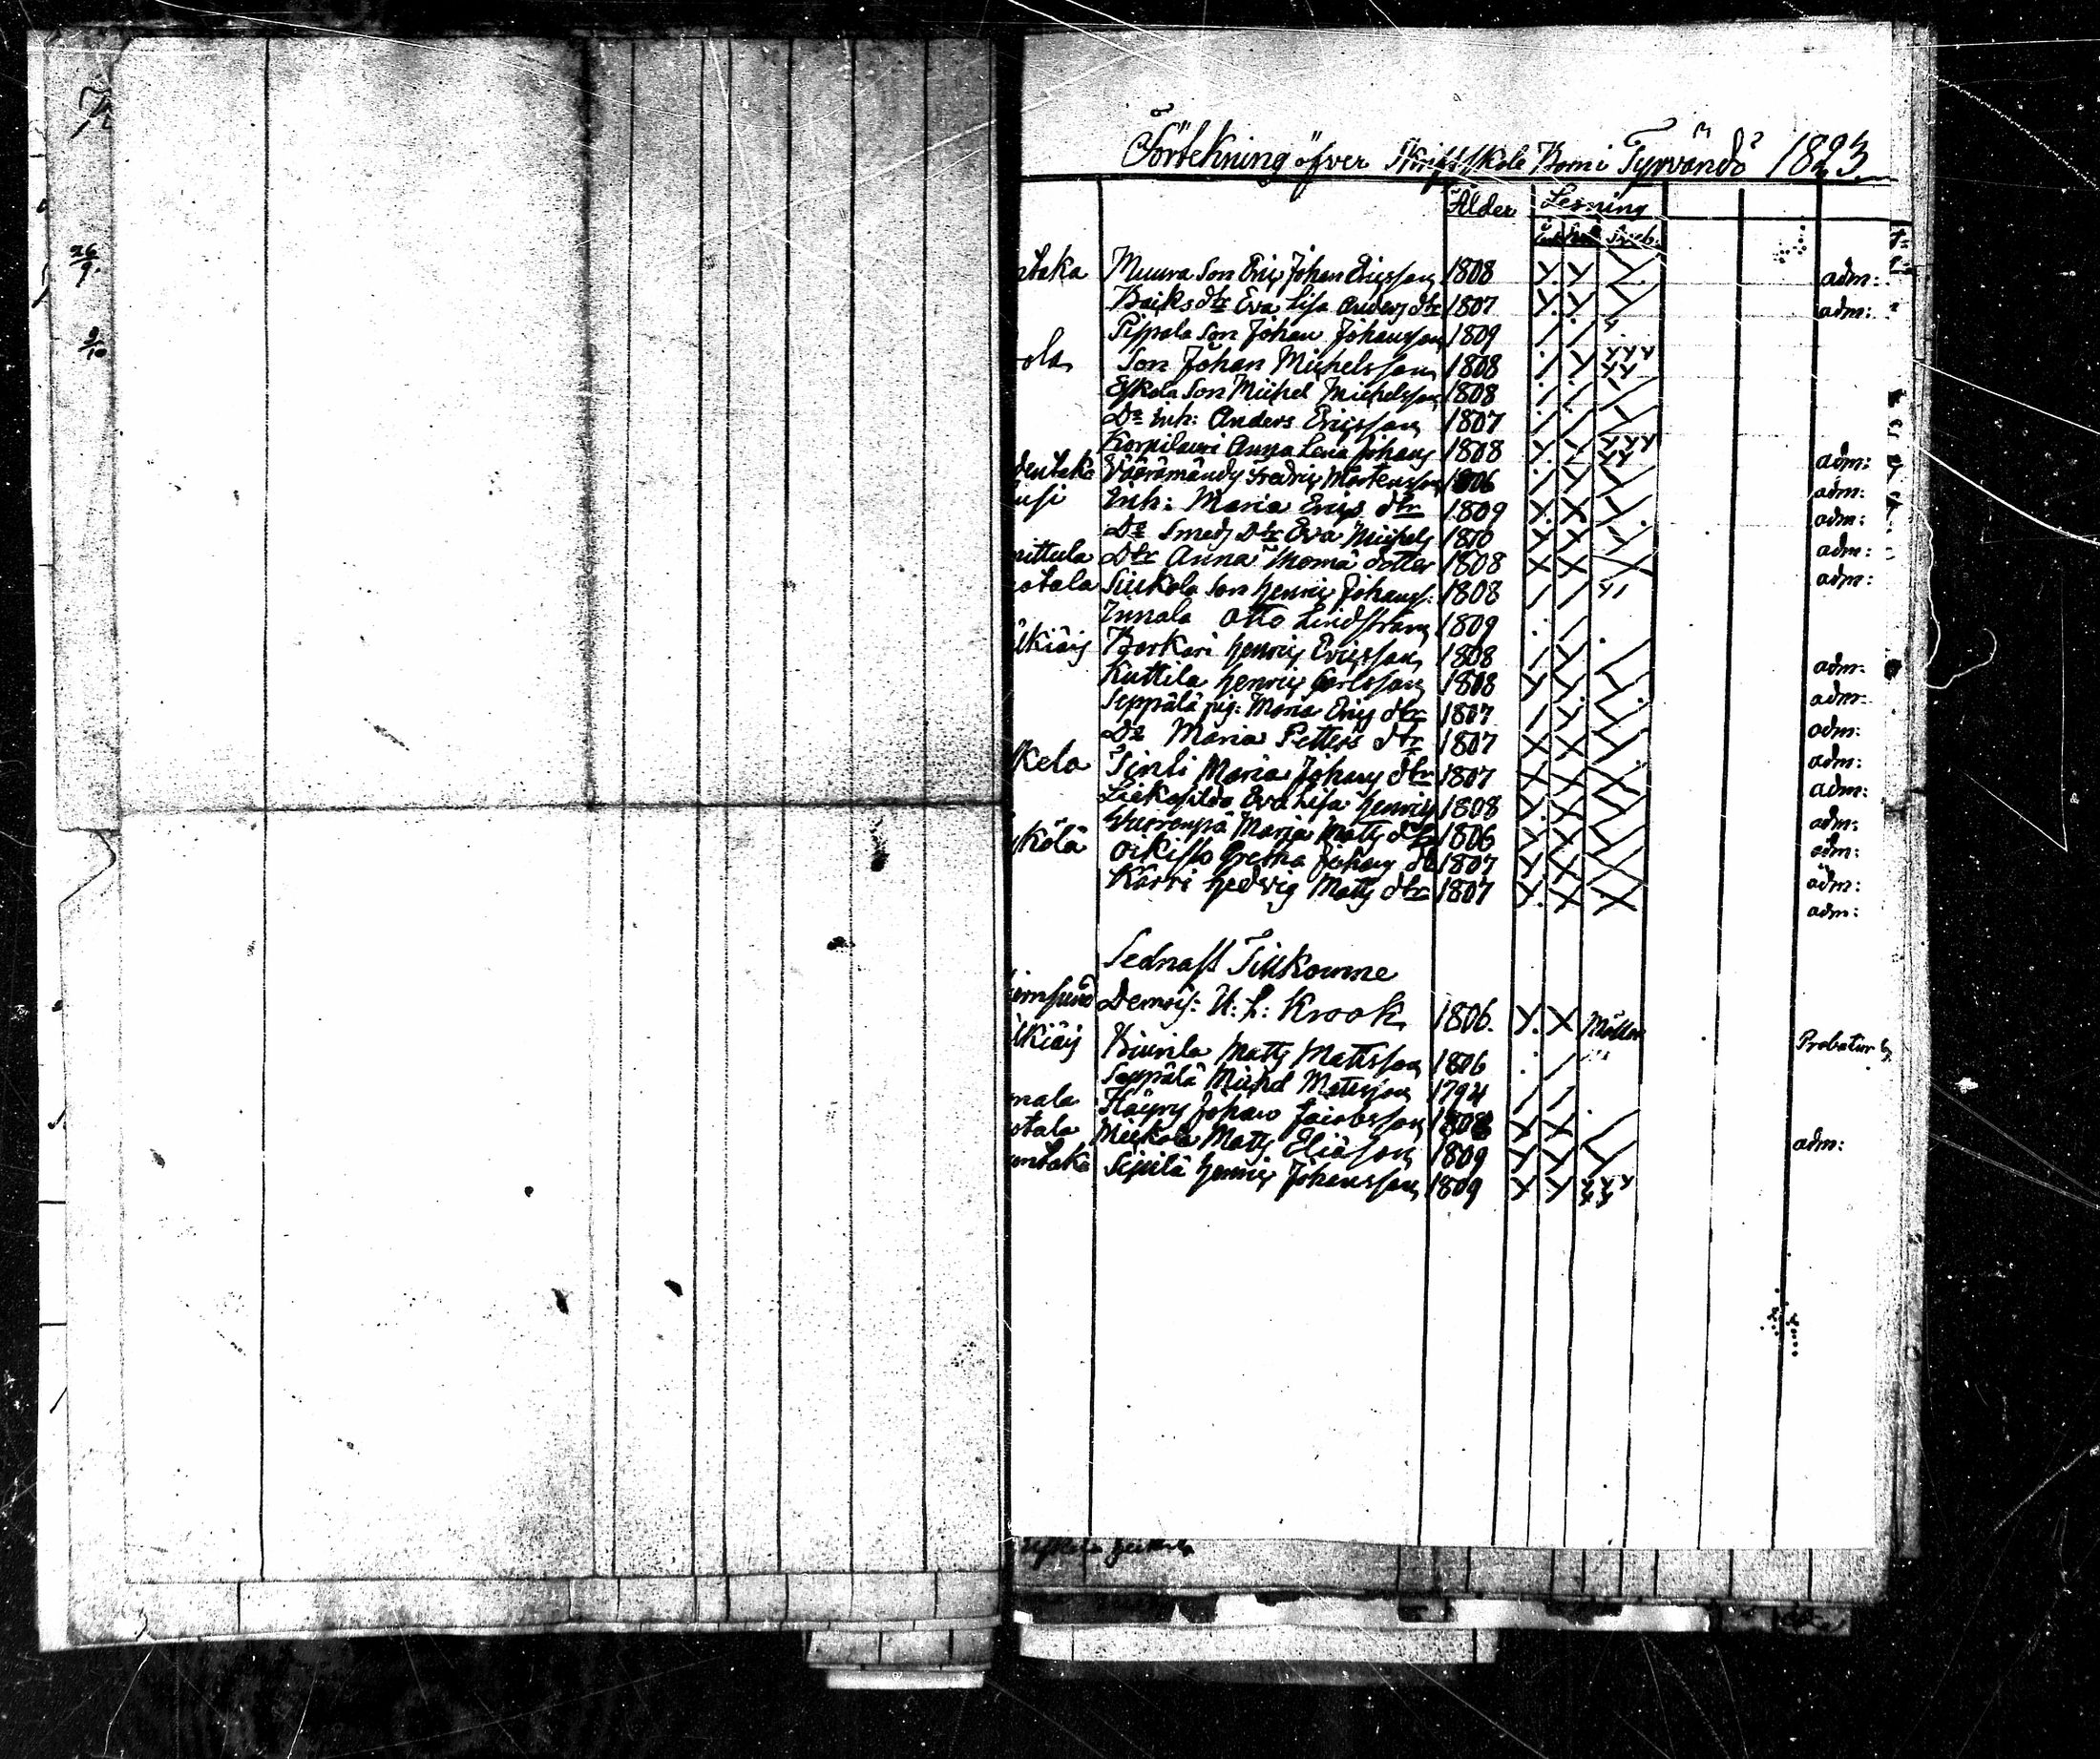 Förtekning öfver Skriftskole Barn i Tyrvändö 1823
Ålder Lesning
ntaka Muura Son Eric Johan Ericsson 1808 adm:
Baiks dtr Eva Lisa Anders dtr 1807 adm:
Sippala Son Johan Johansson 1809
ola Son Johan Michelsson 1808
Eskola Son Michel Michelsson 1808
Do Inh: Anders Ericsson 1807
Korpilauri Anna Lena Johans 1808 adm:
dentaka Fredric Mårtensson 1806 adm:
usi Inh: Maria Erics dtr 1809 adm:
Do Smeds Dtr Eva Michels 1810 adm:
mittula Dtr Anna Thoma dotter 1808 adm:
otala Siukola Son Henric Johanss: 1808
Innala Otto Lindström 1809
lkiäis Karkari Henric Ericsson 1808 adm:
Kuttila Henric Carlsson 1808 adm:
Seppälä pig: Maria Erics dtr 1807 adm:
Do Maria Petters dtr 1807 adm:
kela Tinti Maria Johans dtr 1807 adm:
Eva Lisa Henrics 1808 adm:
Maria Matts dtr 1806 adm:
kölä Gretha Johans dtr 1807 adm:
Karri Hedvig Matts dtr 1807 adm:
Sednast Tillkomne
Demois: U: L: Krook 1806. Probatur
lkiäis Matts Mattsson 1806
Seppälä Michel Mattsson 1794
mala Häyry Johan Jacobsson 1808 adm:
otala Mickola Matts Eliasson 1809
entaka Sipilä Henric Johansson 1809
26/9.
9/10